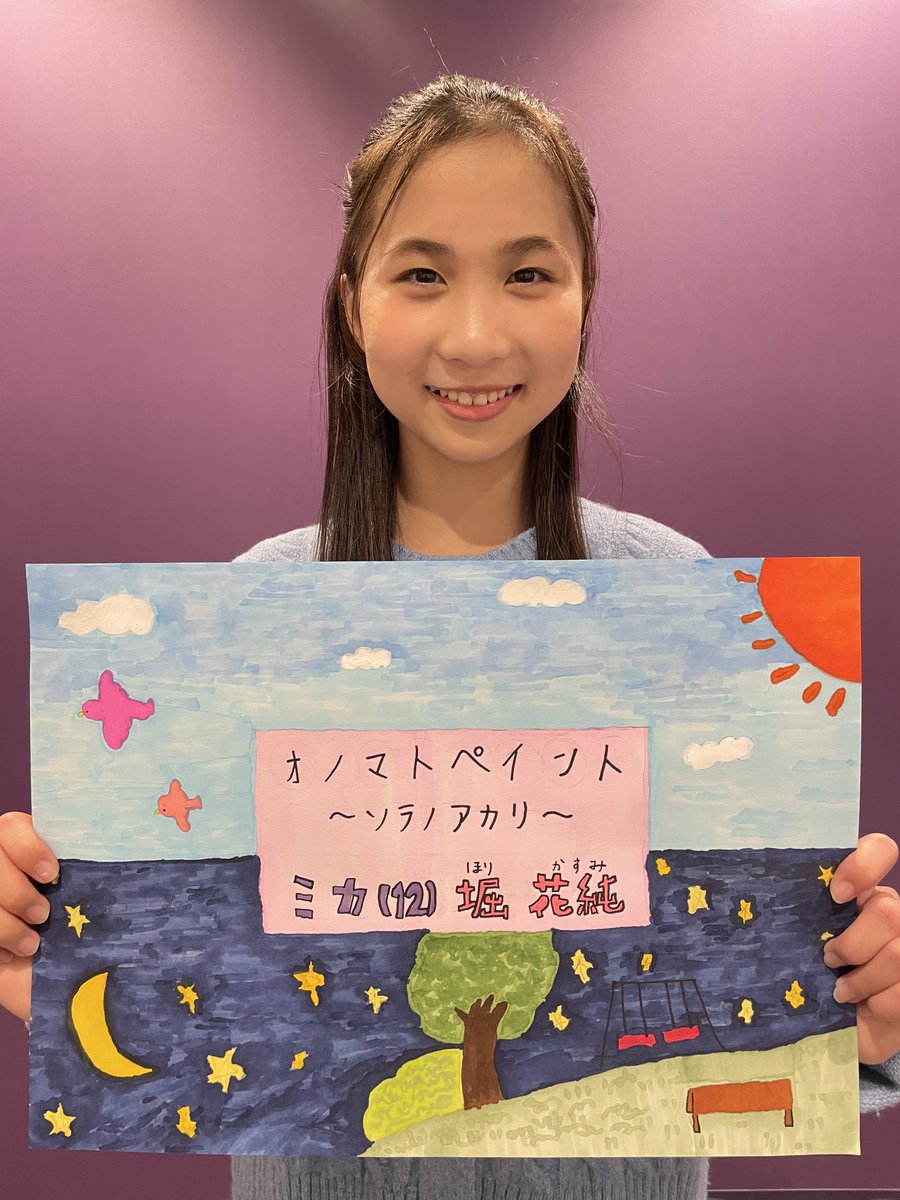 オノマトペイント
～ソラノアカリ～
ほり かすみ
ミカ(12) 堀 花純